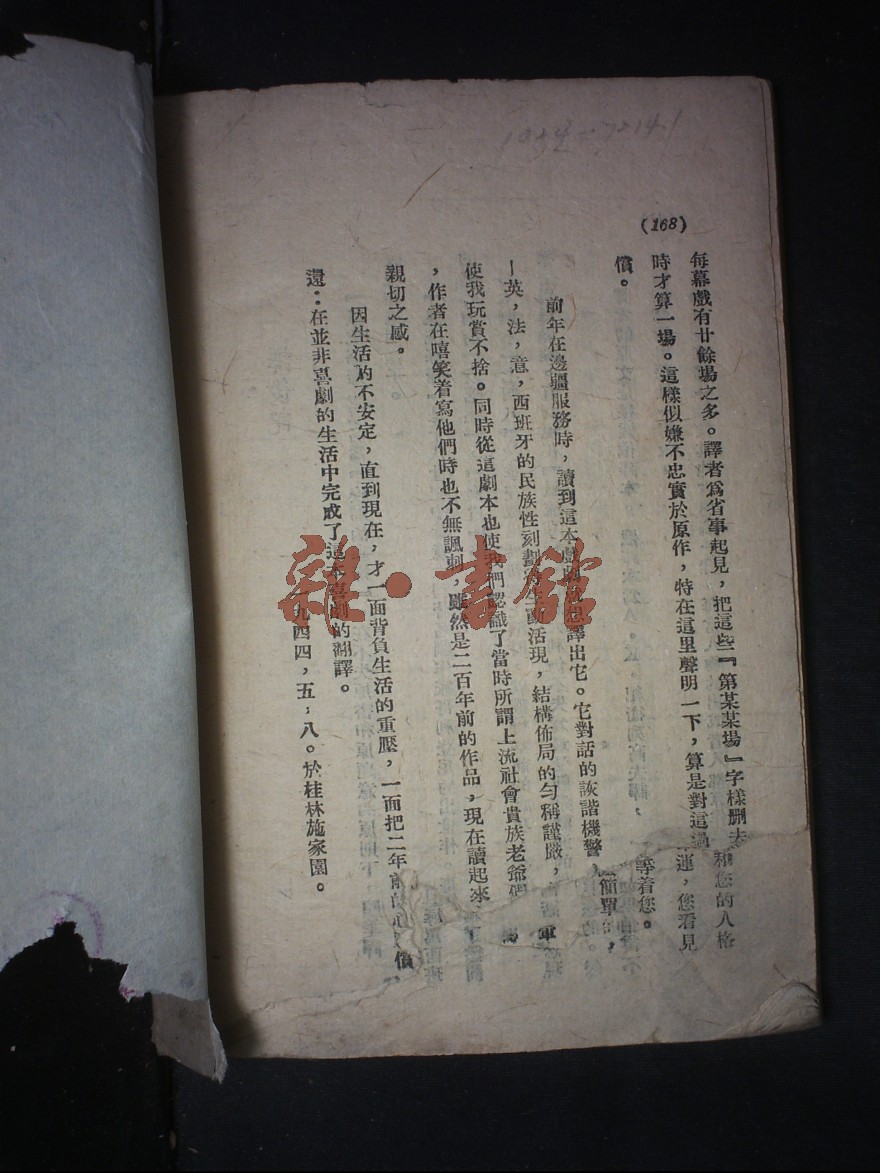 (168)
每幕戲有廿餘場之多。譯者爲省事起見，把這些『第某某場』字樣删去
和您的人格
時才算一場。這樣似嫌不忠實於原作，特在這里聲明一下，算是對這
運，您看見
償。
等着您。
前年在邊疆服務時，讀到這本戲劇就想譯出它。它對話的詼諧機警
簡單
—英，法，意，西班牙的民族性刻劃得生動活現，結構佈局的勻稱謹嚴，
使我玩賞不捨。同時從這劇本也使我們認識了當時所謂上流社會貴族老爺們
，作者在嘻笑着寫他們時也不無諷刺，雖然是二百年前的作品，現在讀起來
親切之感。
因生活的不安定，直到現在，才一面背負生活的重壓，一面把二年前的
償，
還：在並非喜劇的生活中完成了這本喜劇的翻譯。
一九四四，五，八。於桂林施家園。
雜·書館